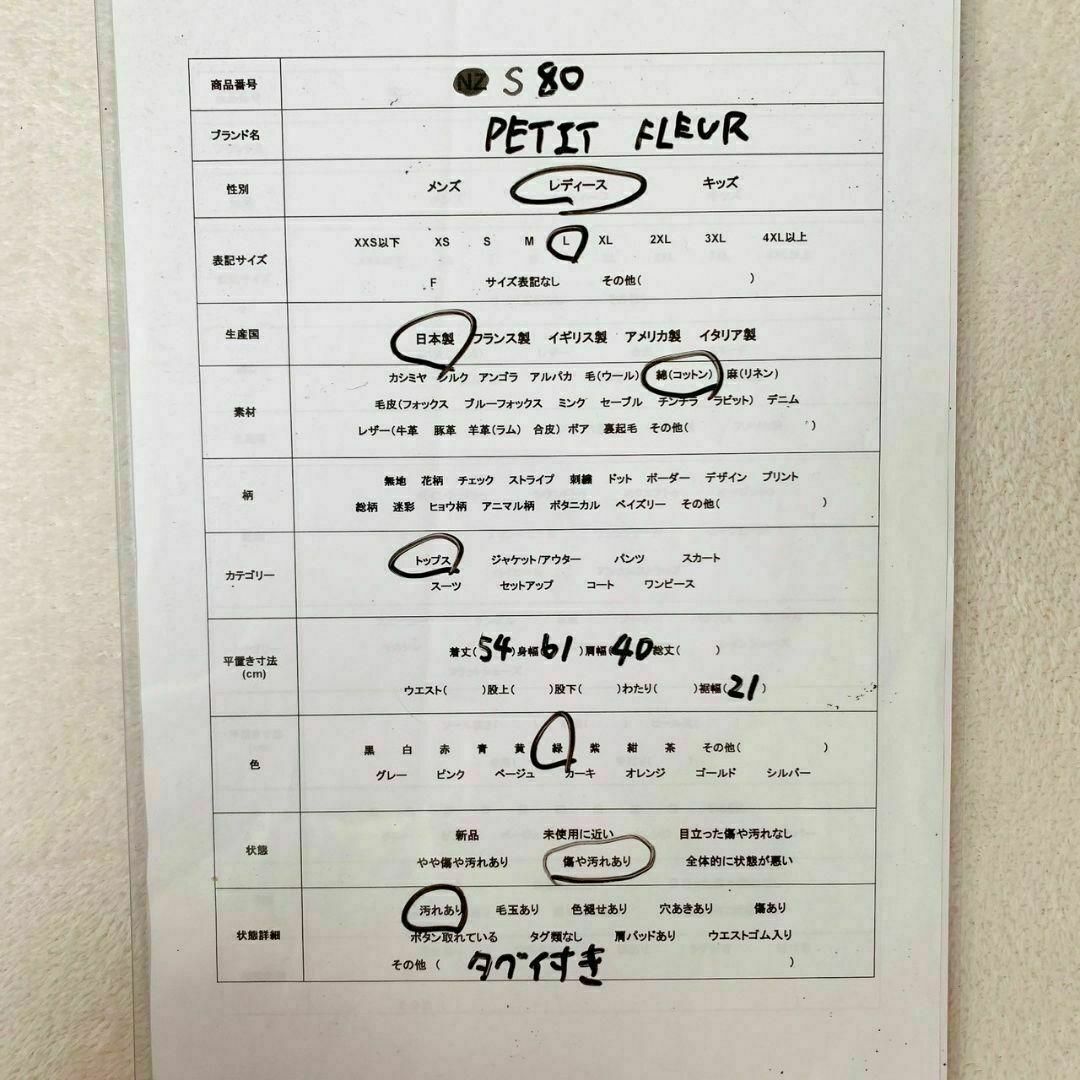 商品番号 NZ S 80
ブランド名 PETIT FLEUR
性別 メンズ レディース キッズ
表記サイズ XXS以下 XS S M L XL 2XL 3XL 4XL以上
F サイズ表記なし その他( )
生産国 日本製 フランス製 イギリス製 アメリカ製 イタリア製
素材 カシミヤ シルク アンゴラ アルパカ 毛(ウール) 綿(コットン) 麻(リネン)
毛皮(フォックス ブルーフォックス ミンク セーブル チンチラ ラビット) デニム
レザー(牛革 豚革 羊革(ラム) 合皮) ボア 裏起毛 その他( )
柄 無地 花柄 チェック ストライプ 刺繍 ドット ボーダー デザイン プリント
総柄 迷彩 ヒョウ柄 アニマル柄 ボタニカル ペイズリー その他( )
カテゴリー トップス ジャケット/アウター パンツ スカート
スーツ セットアップ コート ワンピース
平置き寸法 (cm) 着丈(54)身幅(61)肩幅(40)総丈( )
ウエスト( )股上( )股下( )わたり( )裾幅(21)
色 黒 白 赤 青 黄 緑 紫 紺 茶 その他( )
グレー ピンク ベージュ カーキ オレンジ ゴールド シルバー
状態 新品 未使用に近い 目立った傷や汚れなし
やや傷や汚れあり 傷や汚れあり 全体的に状態が悪い
状態詳細 汚れあり 毛玉あり 色褪せあり 穴あきあり 傷あり
ボタン取れている タグ類なし 肩パッドあり ウエストゴム入り
その他 ( タグ付すき )